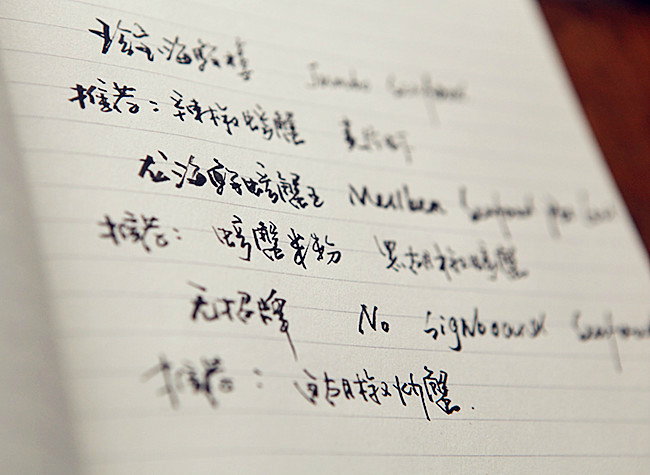 珍宝海鲜楼 Jumbo Seafood
推荐：辣椒螃蟹 麦片虾
龙海鲜螃蟹王 Mellben Seafood
推荐：螃蟹米粉 黑胡椒螃蟹
无招牌 No Signboard Seafood
推荐：白胡椒炒蟹